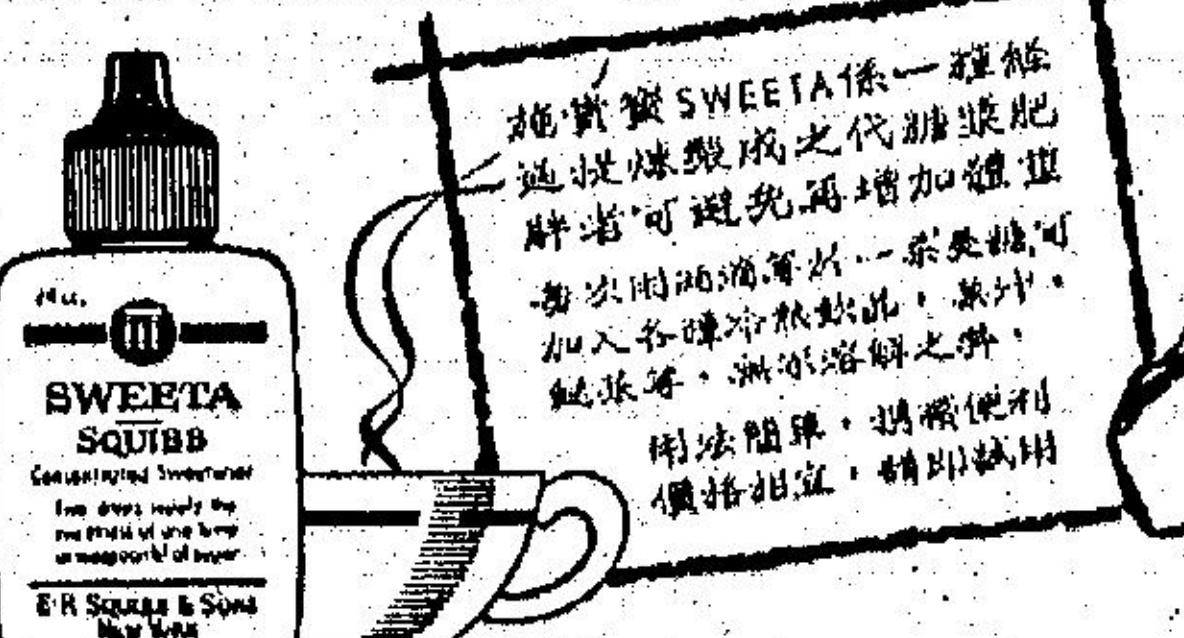 24 cc.
SWEETA
SQUIBB
Concentrated Sweetener
Two drops supply the
sweetness of one lump
or teaspoonful of sugar
E·R SQUIBB & SONS
New York
施貴寶SWEETA係一種經
過提煉製成之代糖漿肥
胖者可避免再增加體重
每次用兩滴等於一茶匙糖可
加入各種冷熱飲品,菓汁,
等,無不溶解之弊,
用法簡單,携帶便利
價格相宜,請即試用